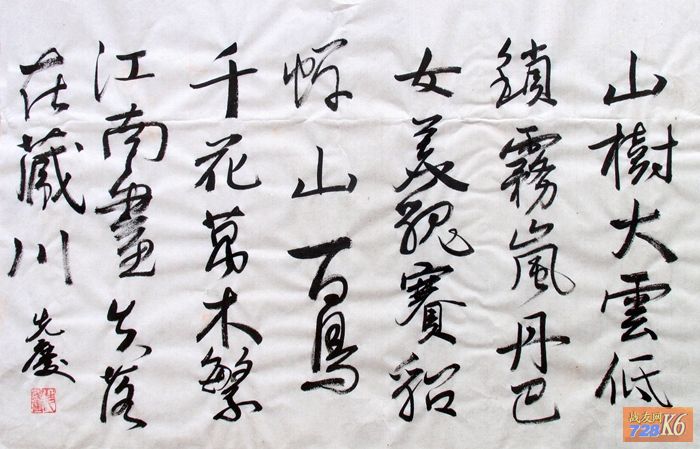 山樹大雲低
鎖霧嵐丹巴
女美貌賽貂
蟬山百鳥
千花萬木繁
江南畫失落
在藏川
先慶
战友网
728K6